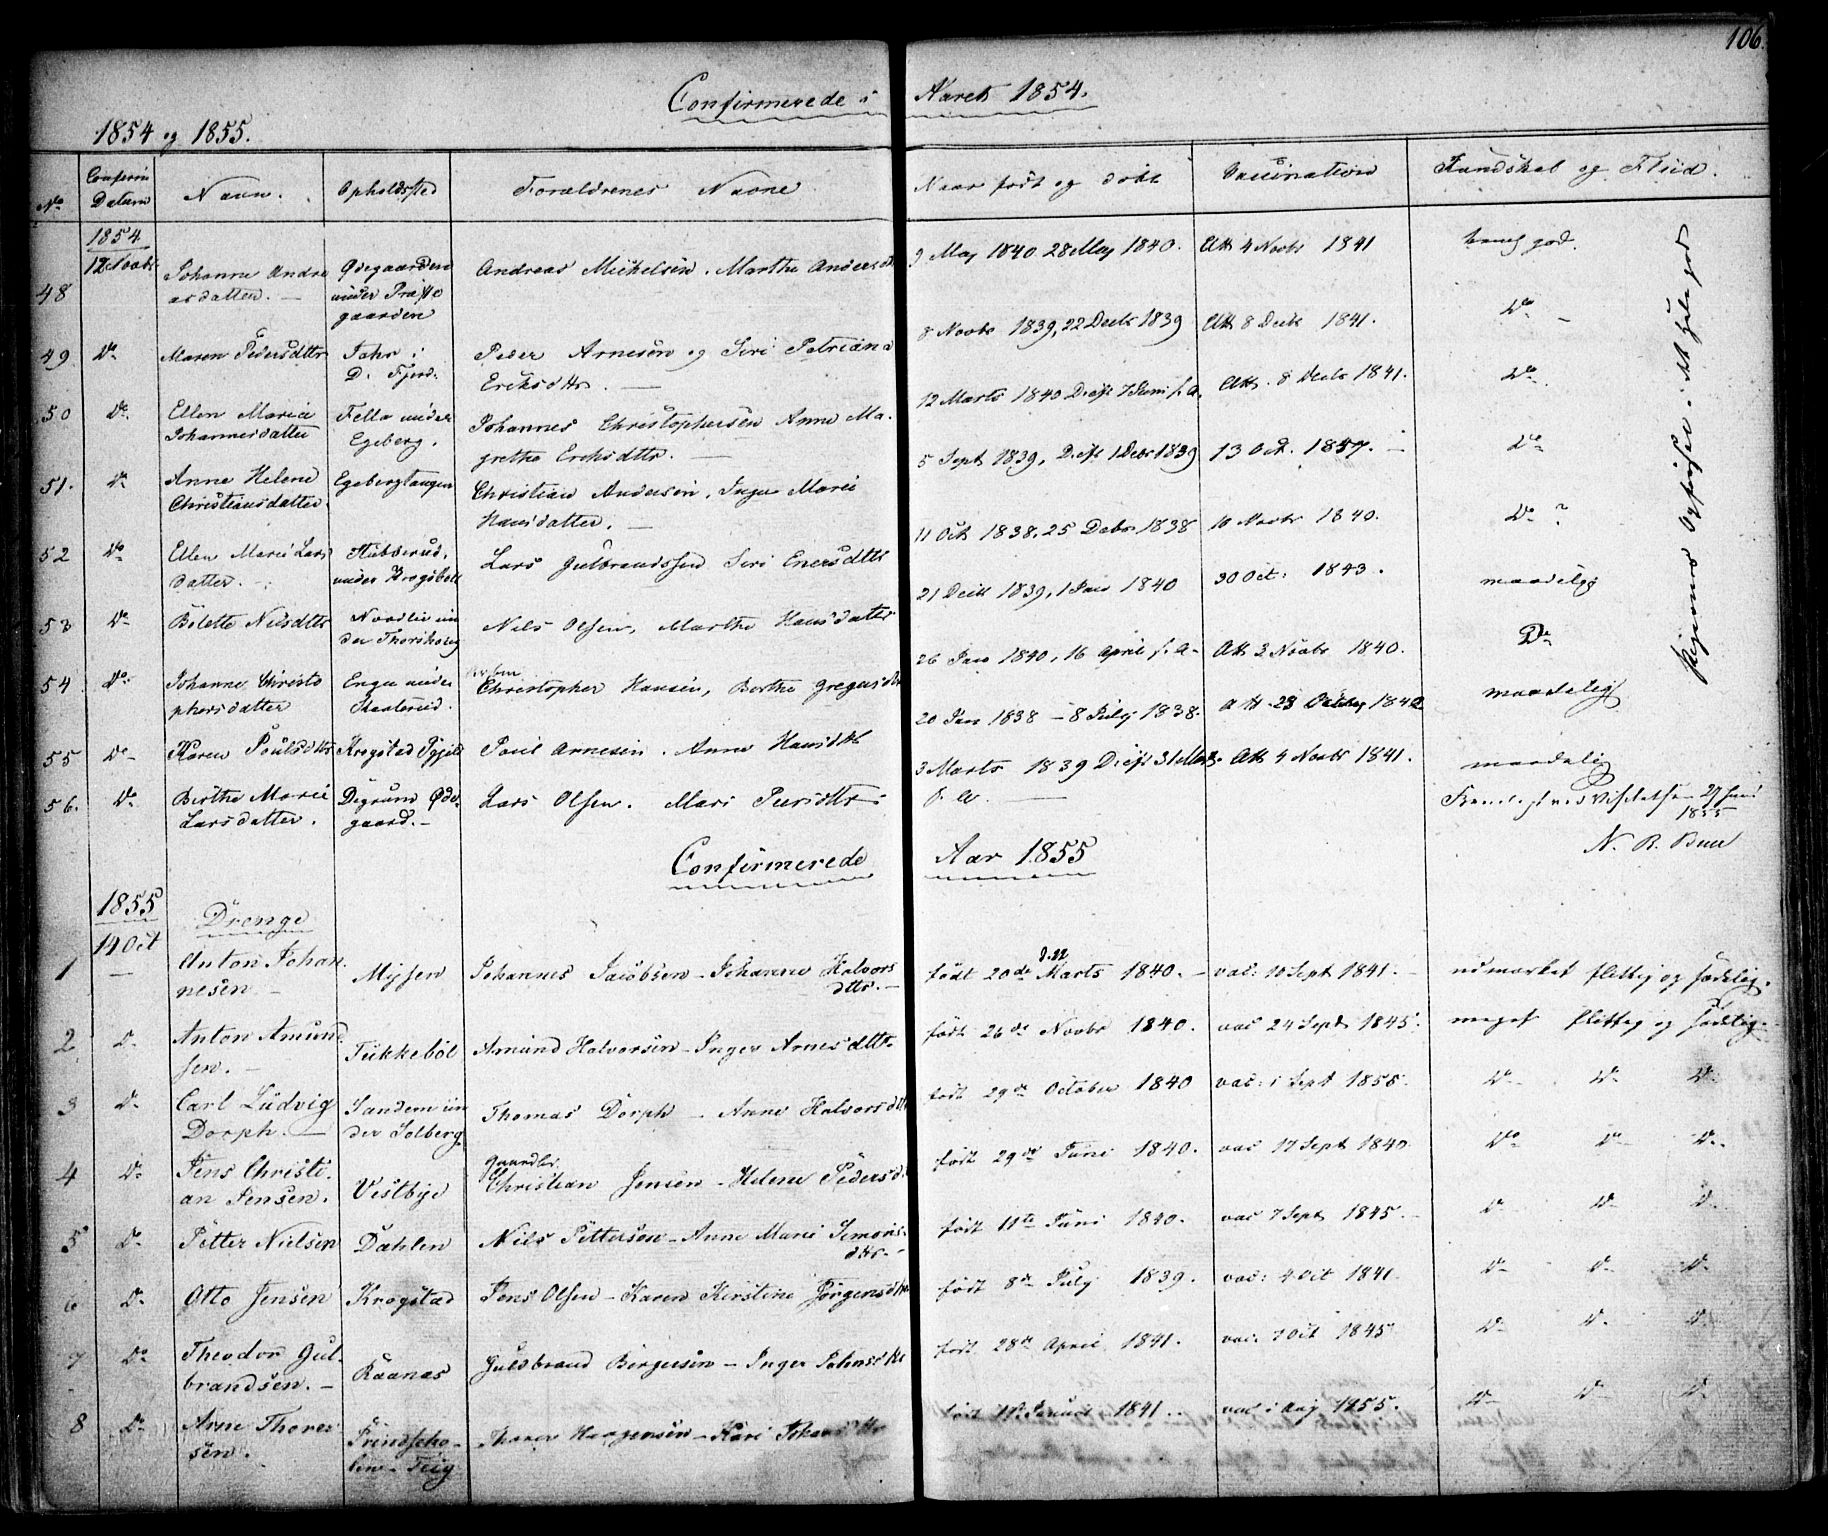 106.
Confirmerede i Aaret 1854.
1854 og 1855.
No Confirm Datum Navn. Opholdsted Forældrenes Navne Naar født og døbt Vaccination Kundskab og Fliid.
1854
12 Novbr
48 Johanne Andreasdatter. Ødegaarden under Præstegaarden Andreas Mickelsen. Marthe Andersd 9 May 1840. 28 May 1840. Att 4 Novbr 1841 god.
49 Do Maren Pedersdttr i D. Fjerd. Peder Arnesen og Siri Petriana Eriksdttr. 8 Novbr 1839, 22 Decbr 1839 Att 8 Decbr 1841. Do
50 Do Ellen Marie Johannesdatter Fella under Egeberg. Johannes Christophersen Anne Magrethe Eriksdttr. 12 Marts 1840 7 Juni s. A. Att. 8 Decbr 1841. Do
51. Do Anne Helene Christiansdatter. Egebergtangen Christian Andersen, Inger Marie Hansdatter. 5 Sept 1839, 1 Debr 1839 13 Oct. Do
52 Do Ellen Marie Larsdatter. under Krogsbøll Lars Gulbrandssen Siri Enersdttr 11 Oct 1838, 25 Debr 1838 10 Novbr 1840. Do ?
53 Do Bolette Nilsdttr under Nils Olsen, Marthe Hansdatter 21 Decbr 1839, 1 Jan 1840 30 Oct: 1843. maadelig
54 Do Johanne Christophersdatter Engen under Christopher Hansen, Berthe Gregersdtr 26 Jan 1840, 16 April s. A. Att 2 Novbr 1840. Do
55 Do Karen Poulsdttr Krogstad Poul Arnesen. Anne Hansdtt 20 Jan 1838 – 8 July 1838. Att 23 maadelig
56. Do Berthe Marie Larsdatter. Ødegaard. Lars Olsen. Mari 3 Marts 1839 31 s. A. Att 4 Novbr 1841. maadelig
ved Visitatsen 27 Juni 1855
N. B. Buu
Confirmerede Aar 1855
1855
14 Oct Drenge
1 Anton Johannesen Mysen Johannes Jacobsen – Johanne Halvorsdttr. født 20de Marts 1840. vac: 10 Sept 1841. udmærket flittig og sædelig.
2 Do Anton Amundsen. Tukkebøl Amund Halvorsen – Inger Arnesdttr. født 26de Novbr 1840. vac 24 Sept 1845. meget flittig og sædelig.
3 Do Carl Ludvig Dorph. Sandem under Solberg Thomas Dorph – Anne Halvorsdtt født 29de October 1840 vac: i Sept 1855. Do Do Do
4 Do Jens Christian Jensen. Vestbye Christian Jensen – Helene Pedersd født 29de Juni 1840. vac 17 Sept 1840 Do Do Do
5 Do Petter Nielsen Dahlen Niels Pettersen – Anne Marie Simonsdttr. født 11te Juni 1840. vac 7 Sept 1845. Do Do Do
6 Do Otto Jensen Krogstad Jens Olsen – Karen Kirstine Jørgensdtr født 8de July 1839. vac: 4 Oct 1841 Do Do Do
7 Do Theodor Gulbrandsen. Raanas Guldbrand Birgersen – Inger født 28de April 1841. vac: 7 Oct 1845 Do Do Do
8 Do Arne Thoresen. Thorer Haagensen – Kari født Januar 1841. vac i Aug 1855. Do Do Do